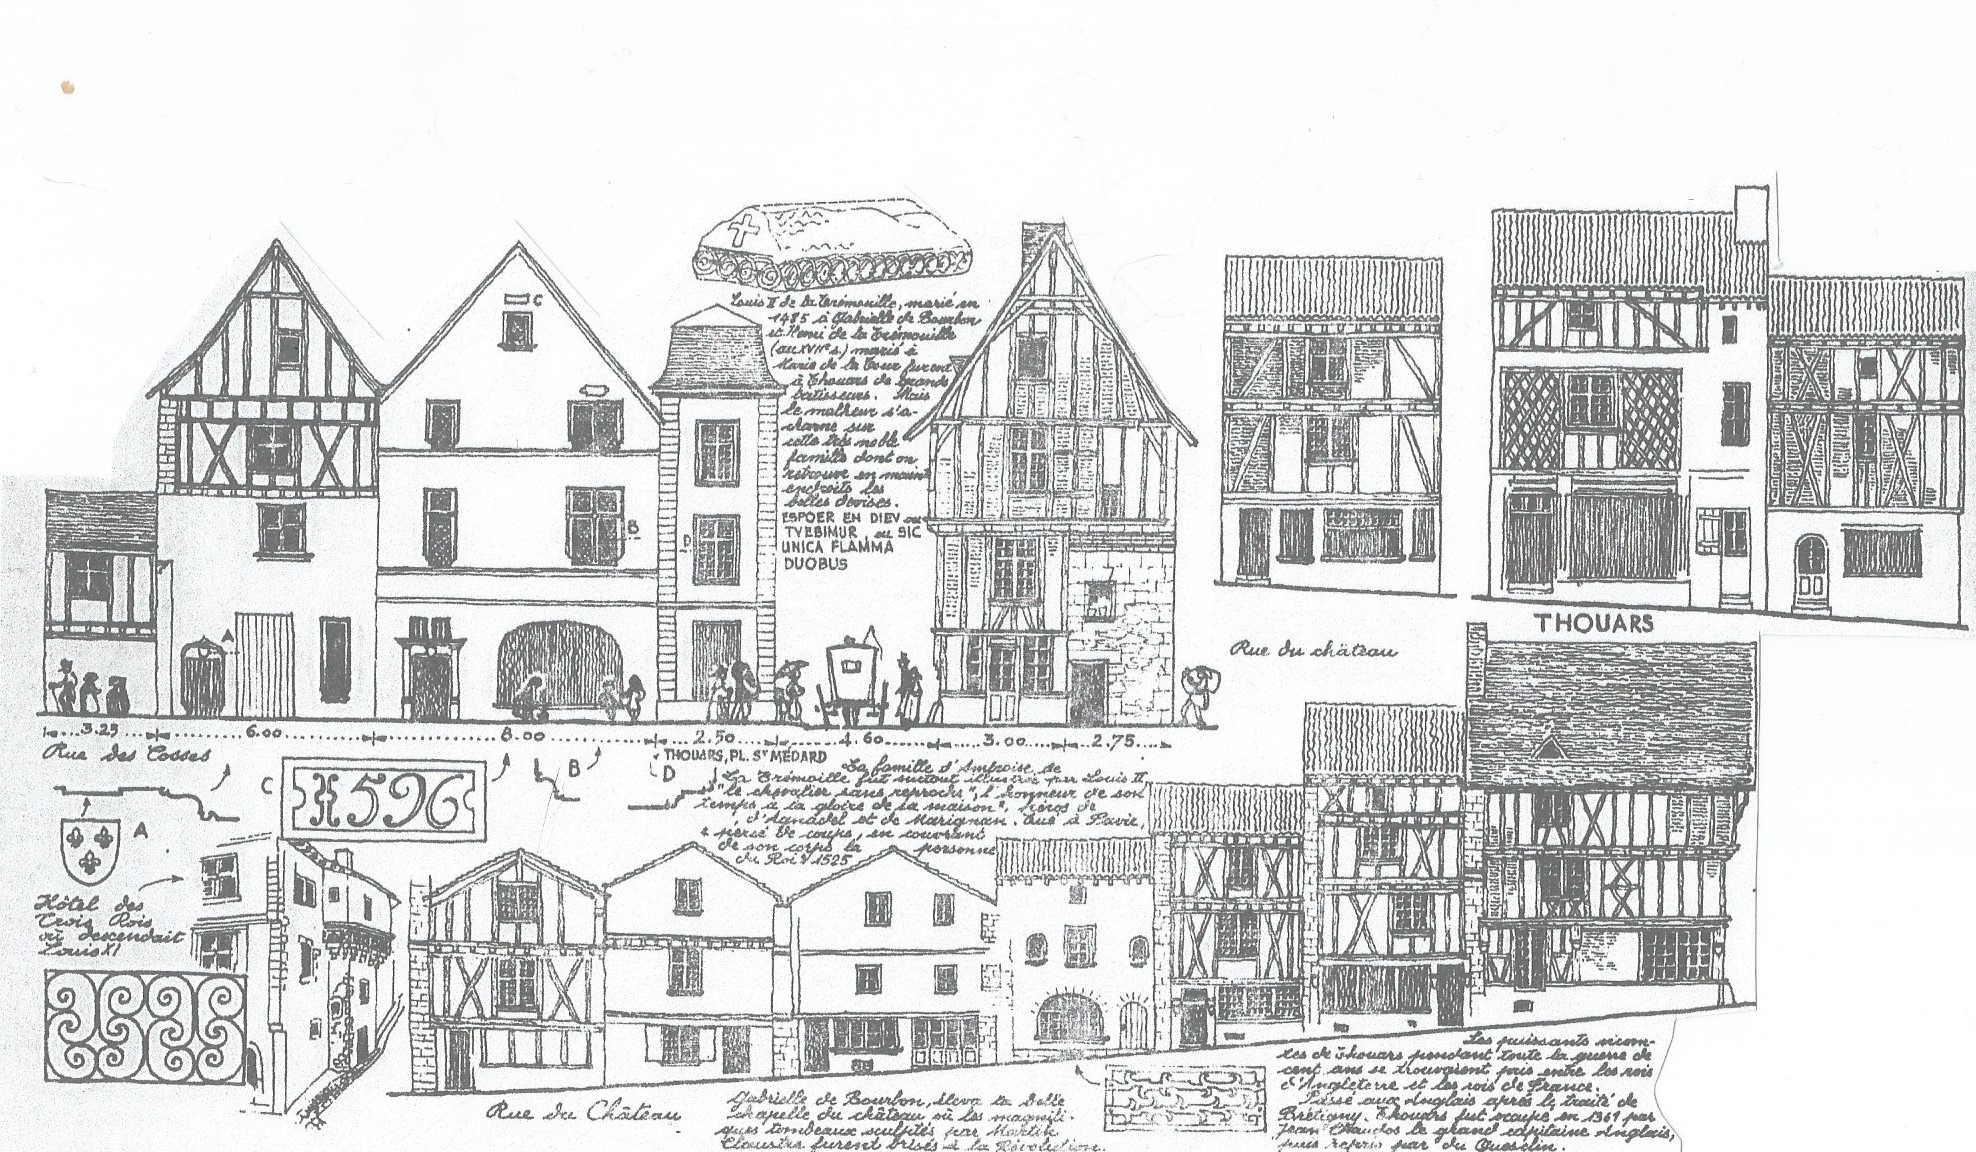 C
Louis II de la Trémouille, marié en
1485 à Gabrielle de Bourbon
et Henri de la Trémouille
(au XVIIe s.) marié à
Marie de la Tour furent
à Thouars de grands
batisseurs. Mais
le malheur s'a-
charne sur
cette très noble
famille dont on
retrouve en maint
endroits les
belles devises.
ESPOER EN DIEV ou
TVEBIMUR, ou SIC
UNICA FLAMMA
DUOBUS
B
D
A
Rue du château
THOUARS
3.25
6.00
8.00
2.50
4.60
3.00
2.75
Rue des Cosses
THOUARS, PL. St MÉDARD
C
B
D
1596
A
La famille d'Amboise de
La Trémoille fut surtout illustrée par Louis II,
"le chevalier sans reproche", l'honneur de son
temps à la gloire de sa maison", héros de
d'Agnadel et de Marignan. Tué à Pavie,
percé de coups, en couvrant
de son corps la personne
du Roi 1525
Hôtel des
Trois Rois
où descendait
Louis XI
Rue du Château
Gabrielle de Bourbon, éleva la belle
chapelle du château où les magnifi-
ques tombeaux sculptés par Martin
Claustre furent brisés à la Révolution.
Les puissants vicom-
tes de Thouars pendant toute la guerre de
cent ans se trouvaient pris entre les rois
d'Angleterre et les rois de France.
Passé aux Anglais après le traité de
Brétigny. Thouars fut occupé en 1361 par
Jean Chandos le grand capitaine Anglais,
puis repris par du Guesclin.